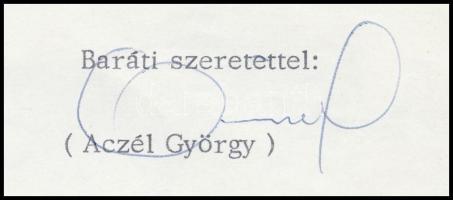 Baráti szeretettel:
( Aczél György )